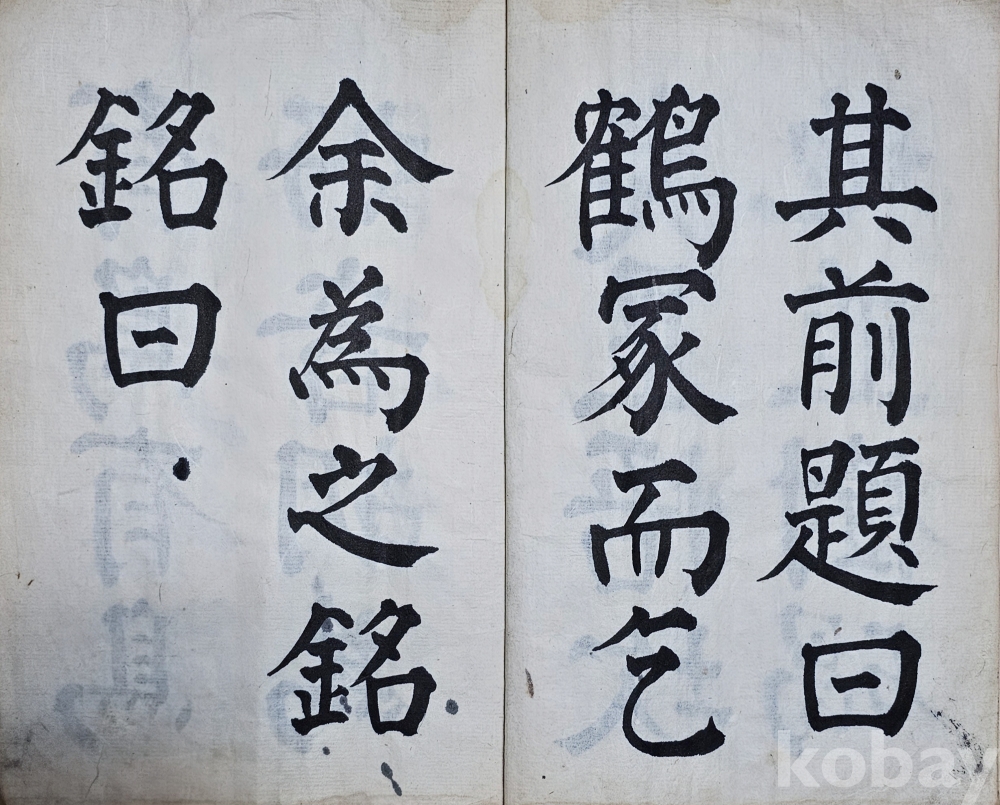 其前題曰
鶴冢而乞
余為之銘
銘曰
kobay